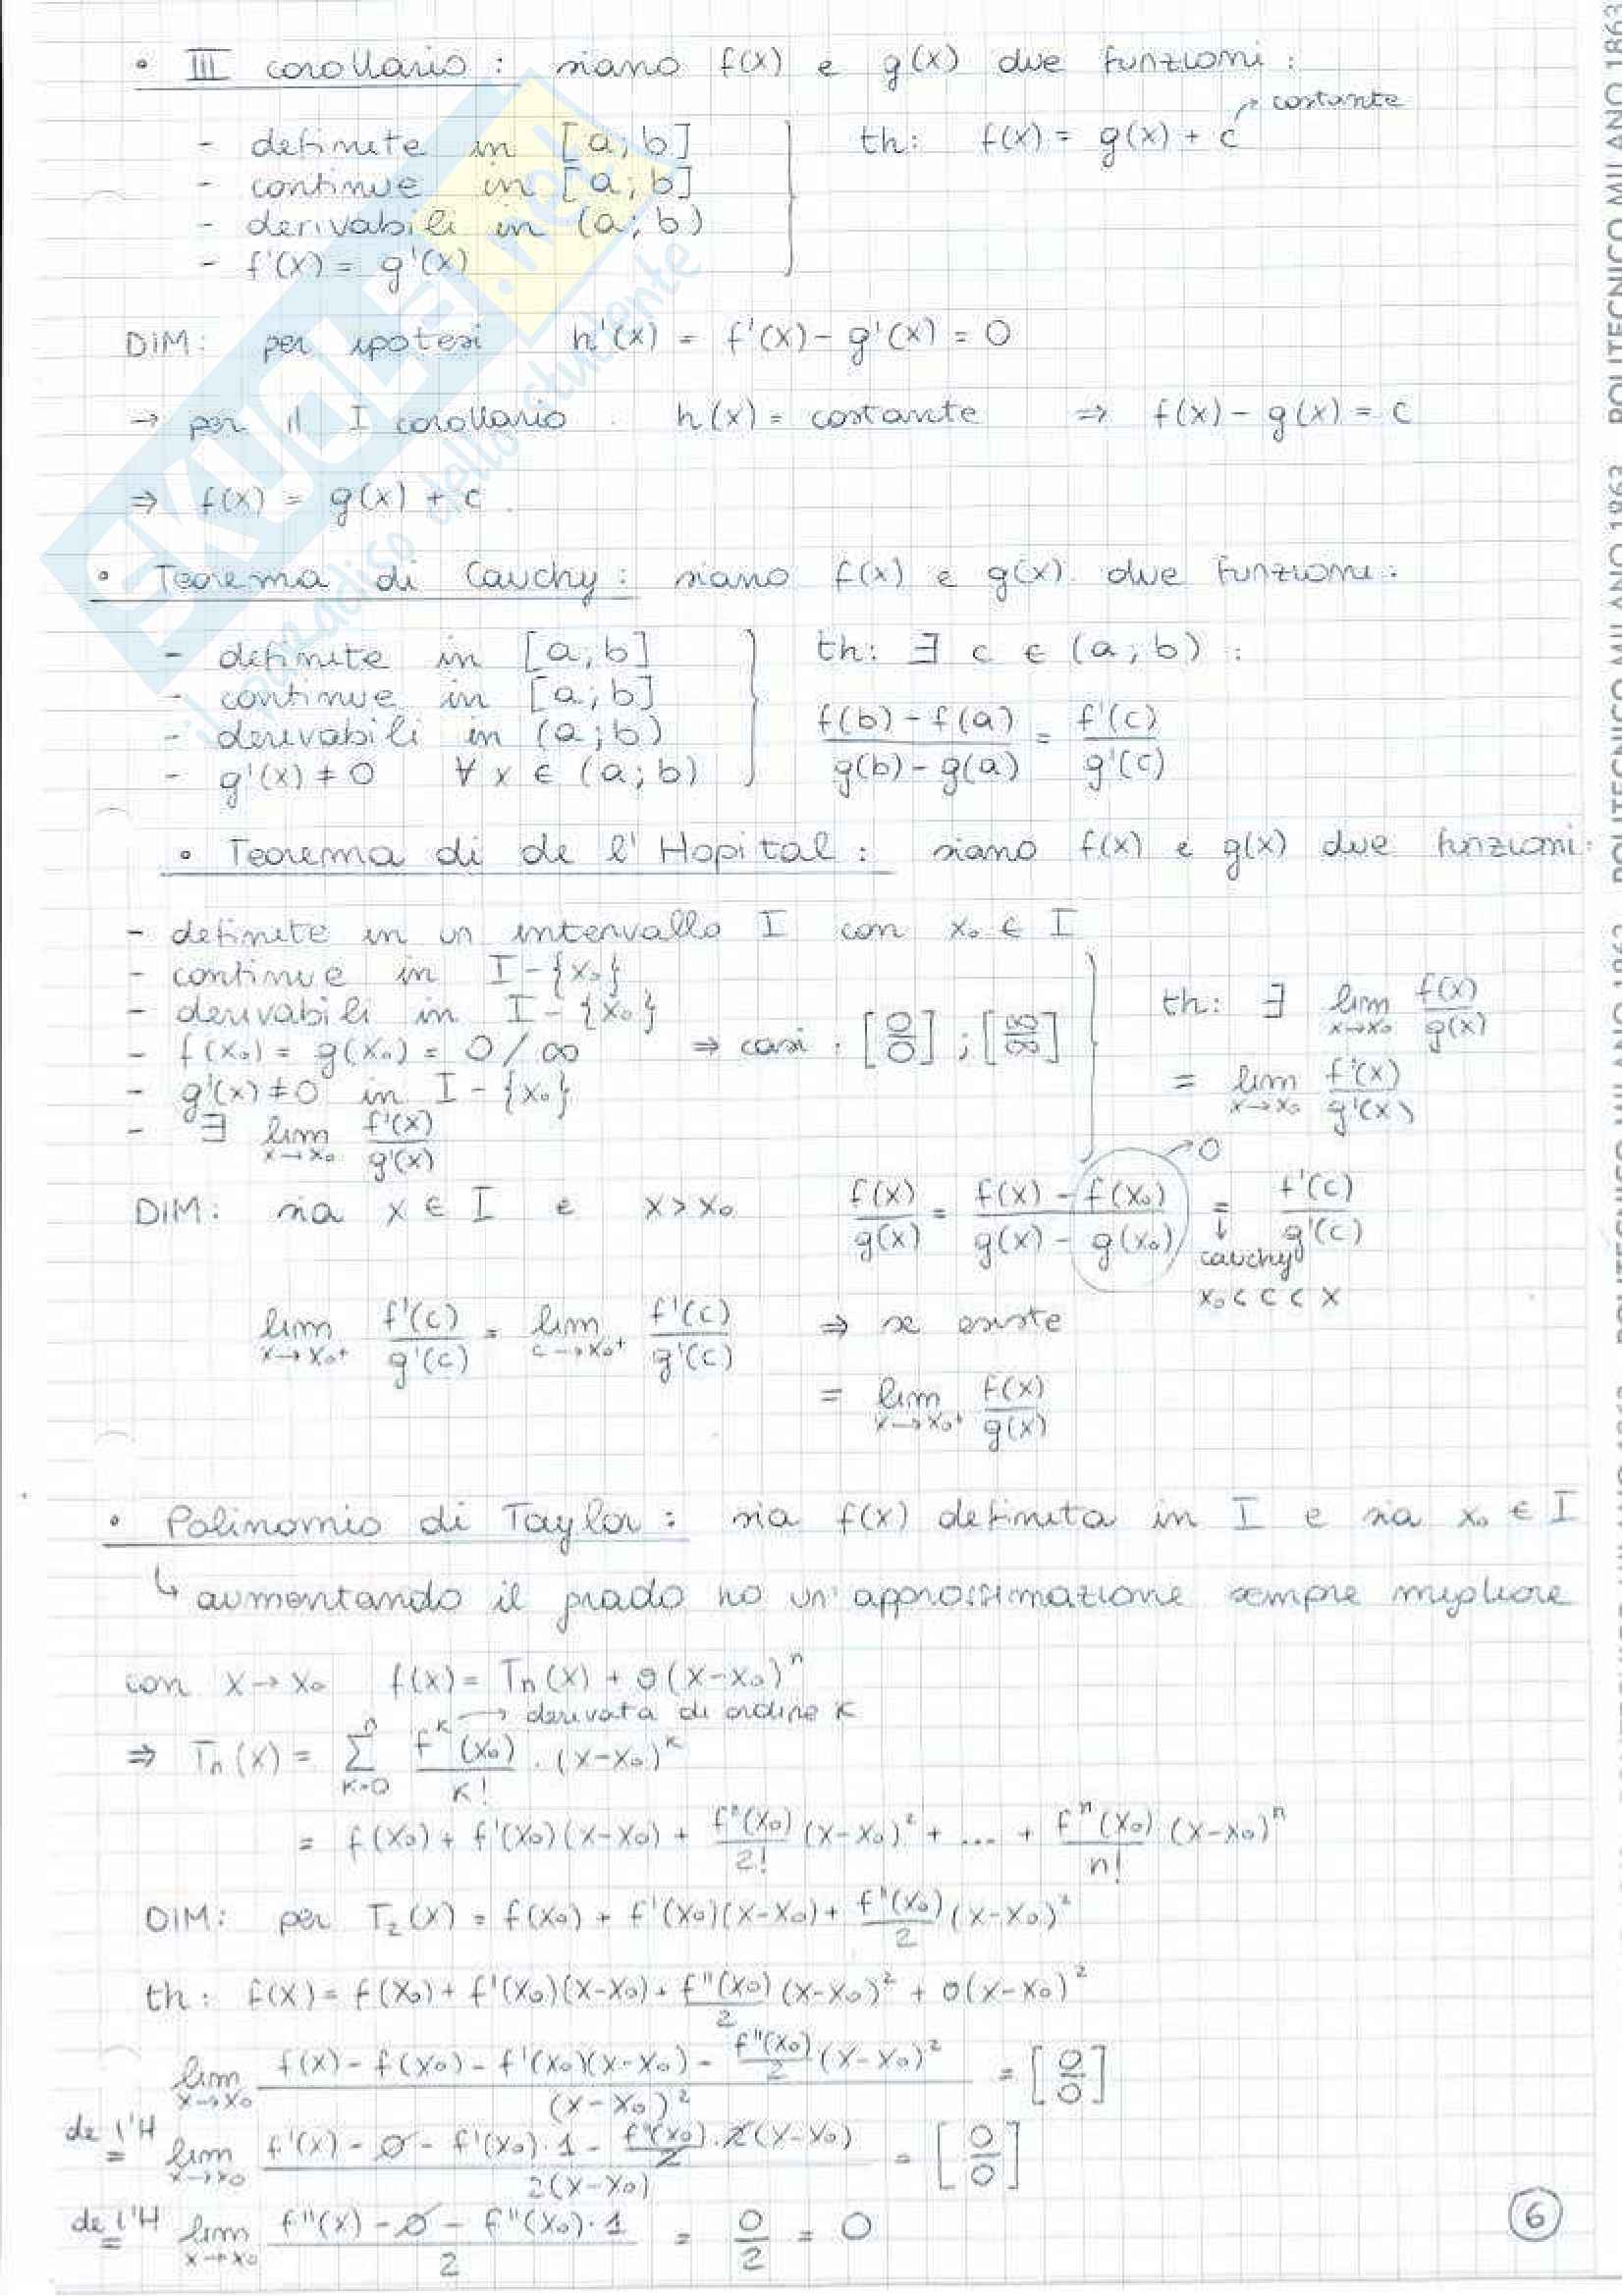 • III corollario : siano f(x) e g(x) due funzioni :
→ costante
- definite in [a;b]
th: f(x) = g(x) + c
- continue in [a;b]
- derivabili in (a;b)
- f'(x) = g'(x)
DIM: per ipotesi h'(x) = f'(x) - g'(x) = 0
→ per il I corollario h(x) = costante ⇒ f(x) - g(x) = c
⇒ f(x) = g(x) + c
• Teorema di Cauchy : siano f(x) e g(x) due funzioni :
- definite in [a;b]
th: ∃ c ∈ (a;b) :
- continue in [a;b]
- derivabili in (a;b)
(f(b) - f(a))/(g(b) - g(a)) = f'(c)/g'(c)
- g'(x) ≠ 0 ∀ x ∈ (a;b)
• Teorema di de l'Hopital : siano f(x) e g(x) due funzioni:
- definite in un intervallo I con x₀ ∈ I
- continue in I - {x₀}
- derivabili in I - {x₀}
th: ∃ lim x→x₀ f(x)/g(x)
- f(x₀) = g(x₀) = 0/∞ ⇒ casi : [0/0] ; [∞/∞]
- g'(x) ≠ 0 in I - {x₀}
= lim x→x₀ f'(x)/g'(x)
- ∃ lim x→x₀ f'(x)/g'(x)
→ 0
DIM: sia x ∈ I e x > x₀ f(x)/g(x) = (f(x) - f(x₀))/(g(x) - g(x₀)) = f'(c)/g'(c)
↓ cauchy
x₀ < c < x
lim x→x₀⁺ f'(c)/g'(c) = lim c→x₀⁺ f'(c)/g'(c) ⇒ se esiste
= lim x→x₀⁺ f(x)/g(x)
• Polinomio di Taylor : sia f(x) definita in I e sia x₀ ∈ I
↳ aumentando il grado ho un'approssimazione sempre migliore
con x→x₀ f(x) = Tₙ(x) + o(x-x₀)ⁿ
→ derivata di ordine k
⇒ Tₙ(x) = Σ k=0 n fᵏ(x₀)/k! · (x-x₀)ᵏ
= f(x₀) + f'(x₀)(x-x₀) + f''(x₀)/2! (x-x₀)² + ... + fⁿ(x₀)/n! (x-x₀)ⁿ
DIM: per T₂(x) = f(x₀) + f'(x₀)(x-x₀) + f''(x₀)/2 (x-x₀)²
th: f(x) = f(x₀) + f'(x₀)(x-x₀) + f''(x₀)/2 (x-x₀)² + o(x-x₀)²
lim x→x₀ (f(x) - f(x₀) - f'(x₀)(x-x₀) - f''(x₀)/2 · (x-x₀)²)/(x-x₀)² = [0/0]
de l'H = lim x→x₀ (f'(x) - 0 - f'(x₀)·1 - f''(x₀)/2 · 2(x-x₀))/(2(x-x₀)) = [0/0]
de l'H = lim x→x₀ (f''(x) - 0 - f''(x₀)·1)/2 = 0/2 = 0
6
SKUOLA.net
il paradiso dello studente
POLITECNICO MILANO 1863
POLITECNICO MILANO 1863